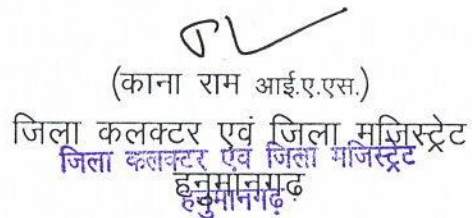 (काना राम आई.ए.एस.)
जिला कलक्टर एवं जिला मजिस्ट्रेट
जिला कलक्टर एवं जिला मजिस्ट्रेट
हनुमानगढ़
हनुमानगढ़